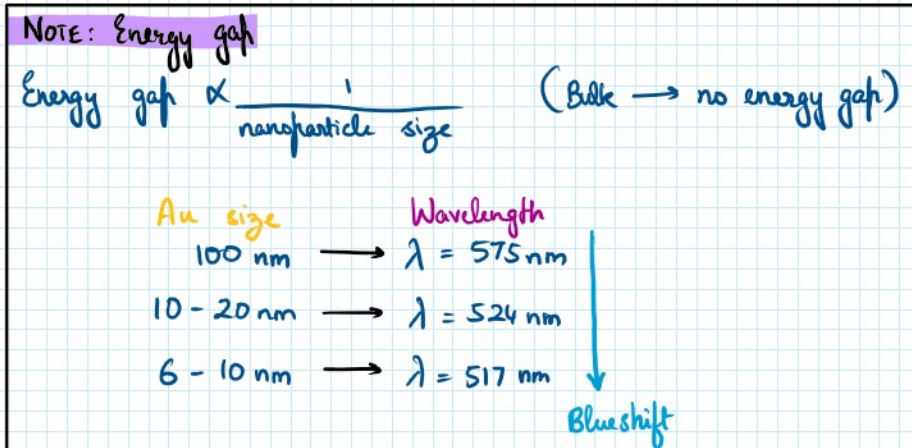 NOTE: Energy gap
Energy gap ∝ 1 / nanoparticle size (Bulk → no energy gap)
Au size Wavelength
100 nm → λ = 575 nm
10 - 20 nm → λ = 524 nm
6 - 10 nm → λ = 517 nm
Blueshift